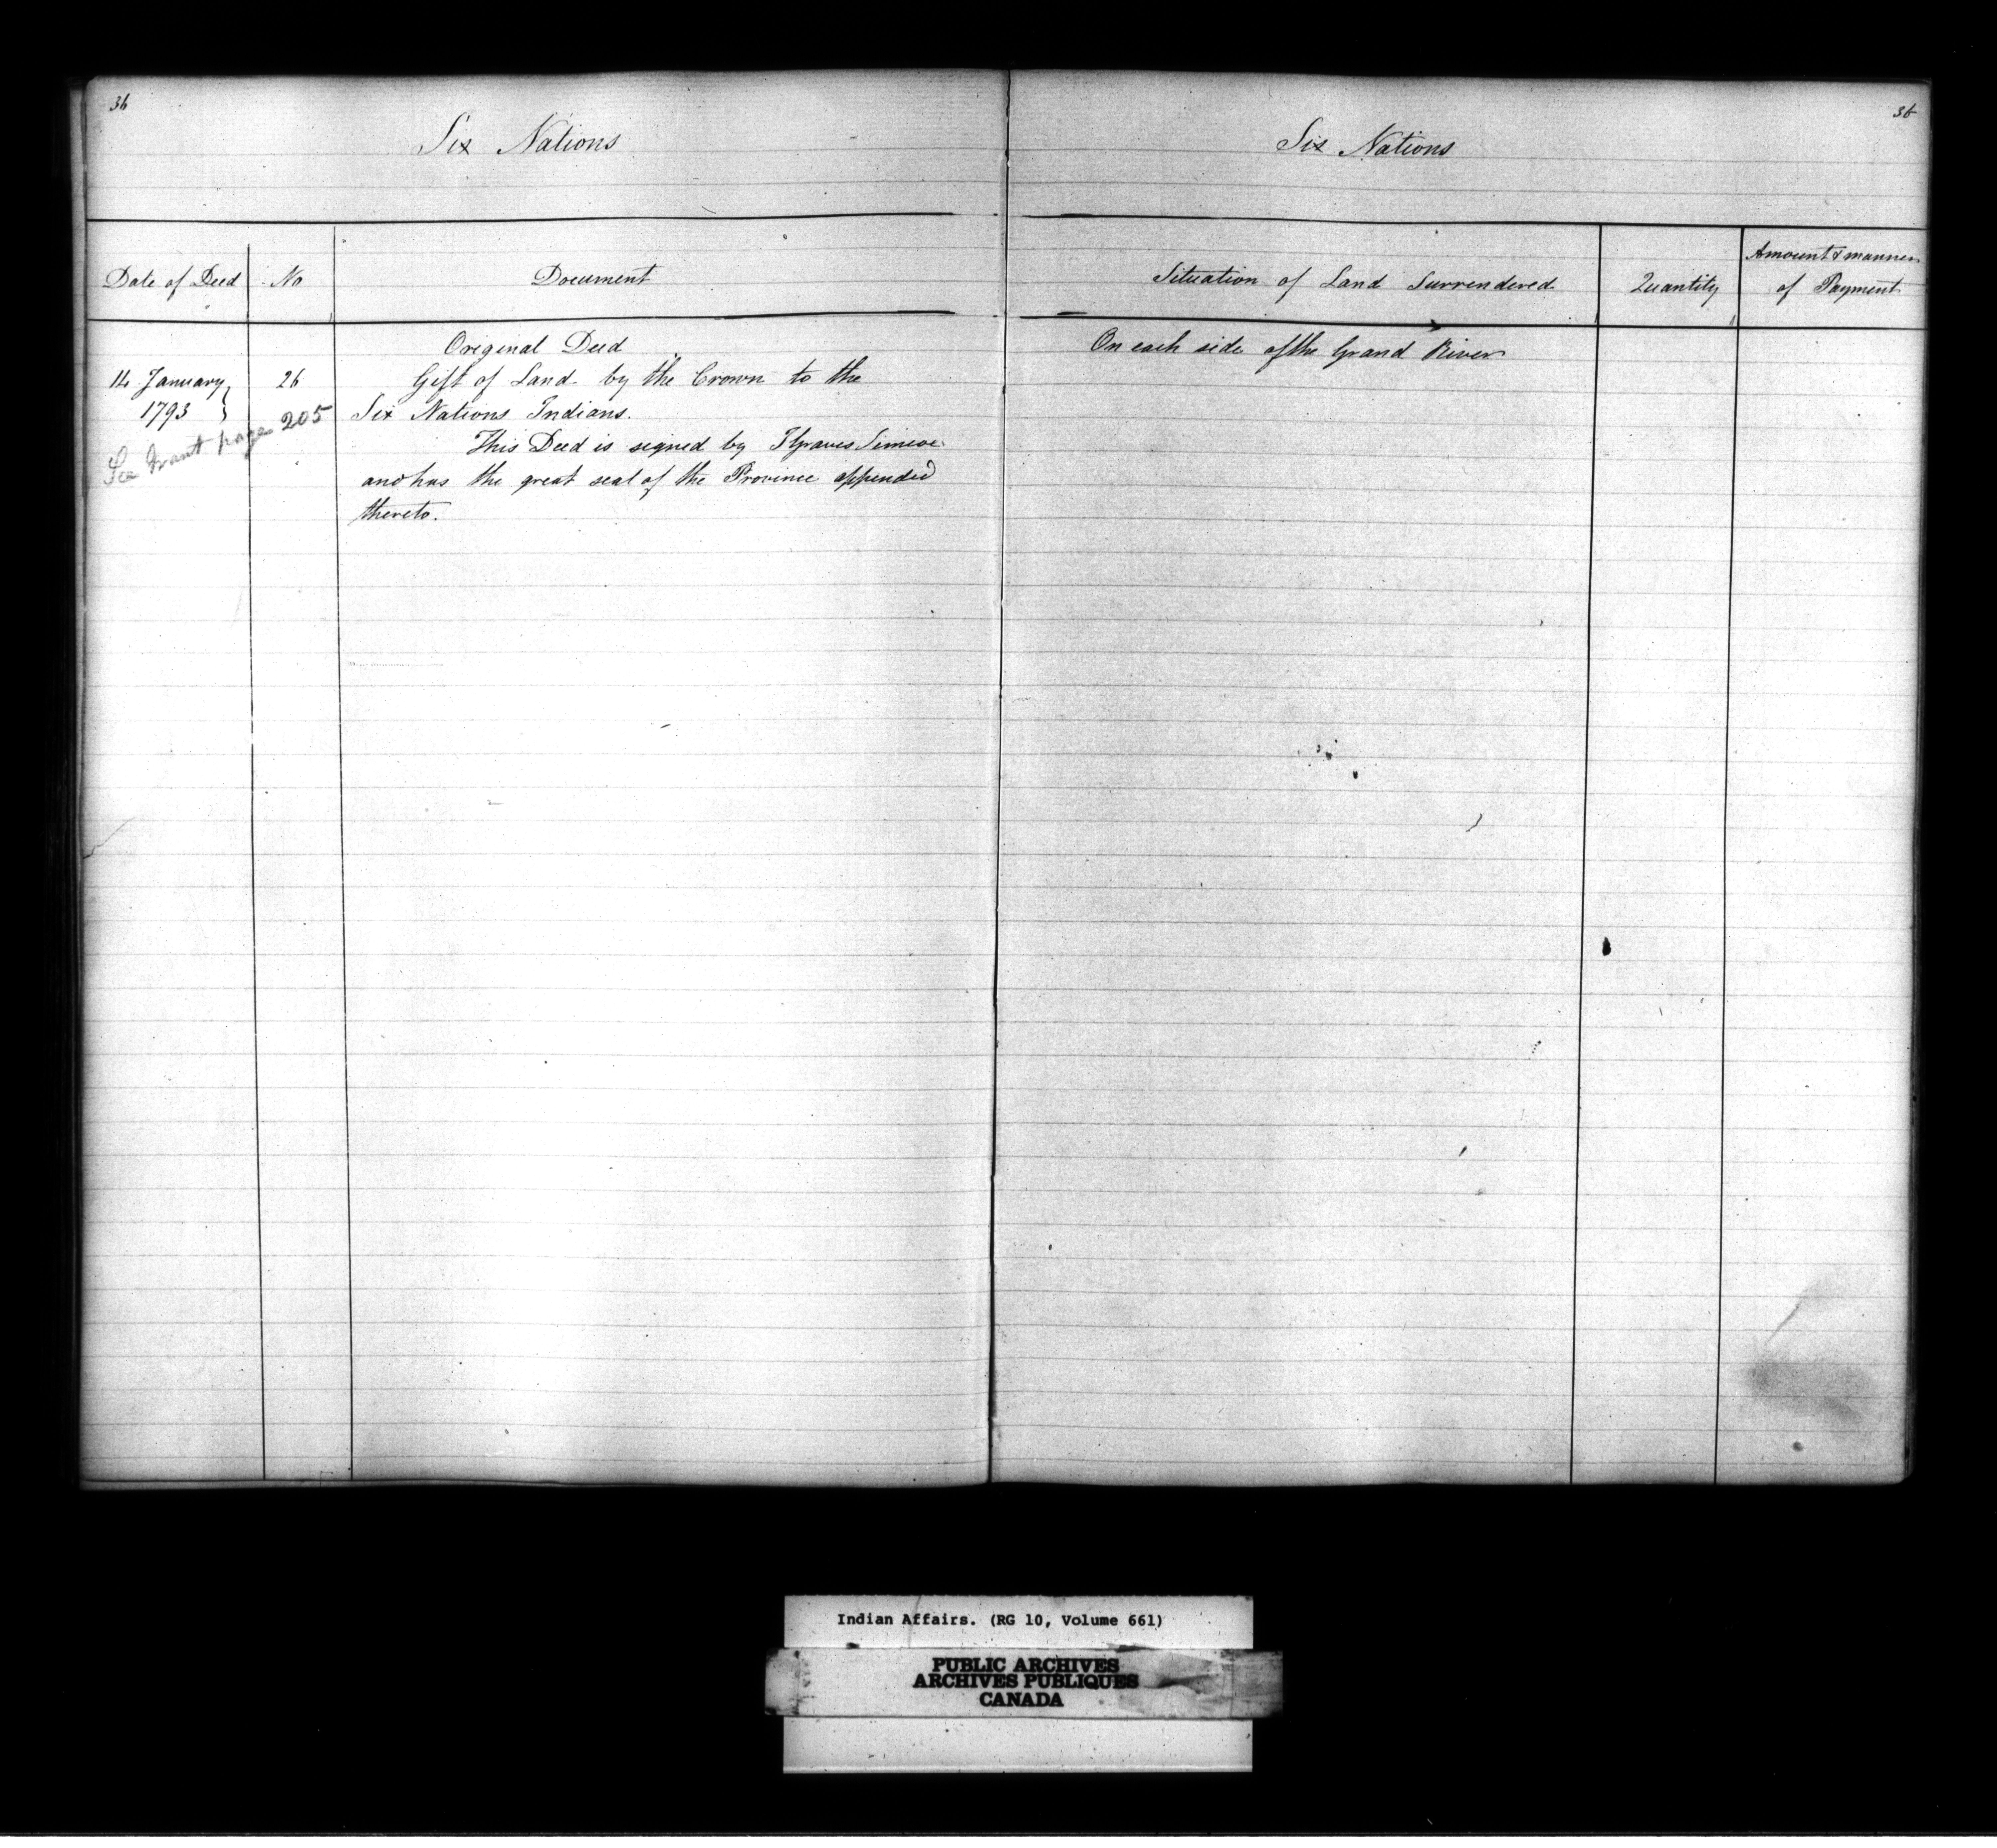 36
Six Nations
Date of Deed
No
Document
Original Deed
14 January
26
Gift of Land by the Crown to the
1793
Six Nations Indians.
See Grant page 205
This Deed is signed by J Graves Simcoe
and has the great seal of the Province appended
thereto.
36
Six Nations
Situation of Land Surrendered
Quantity
Amount & manner
of Payment
On each side of the Grand River
Indian Affairs. (RG 10, Volume 661)
PUBLIC ARCHIVES
ARCHIVES PUBLIQUES
CANADA